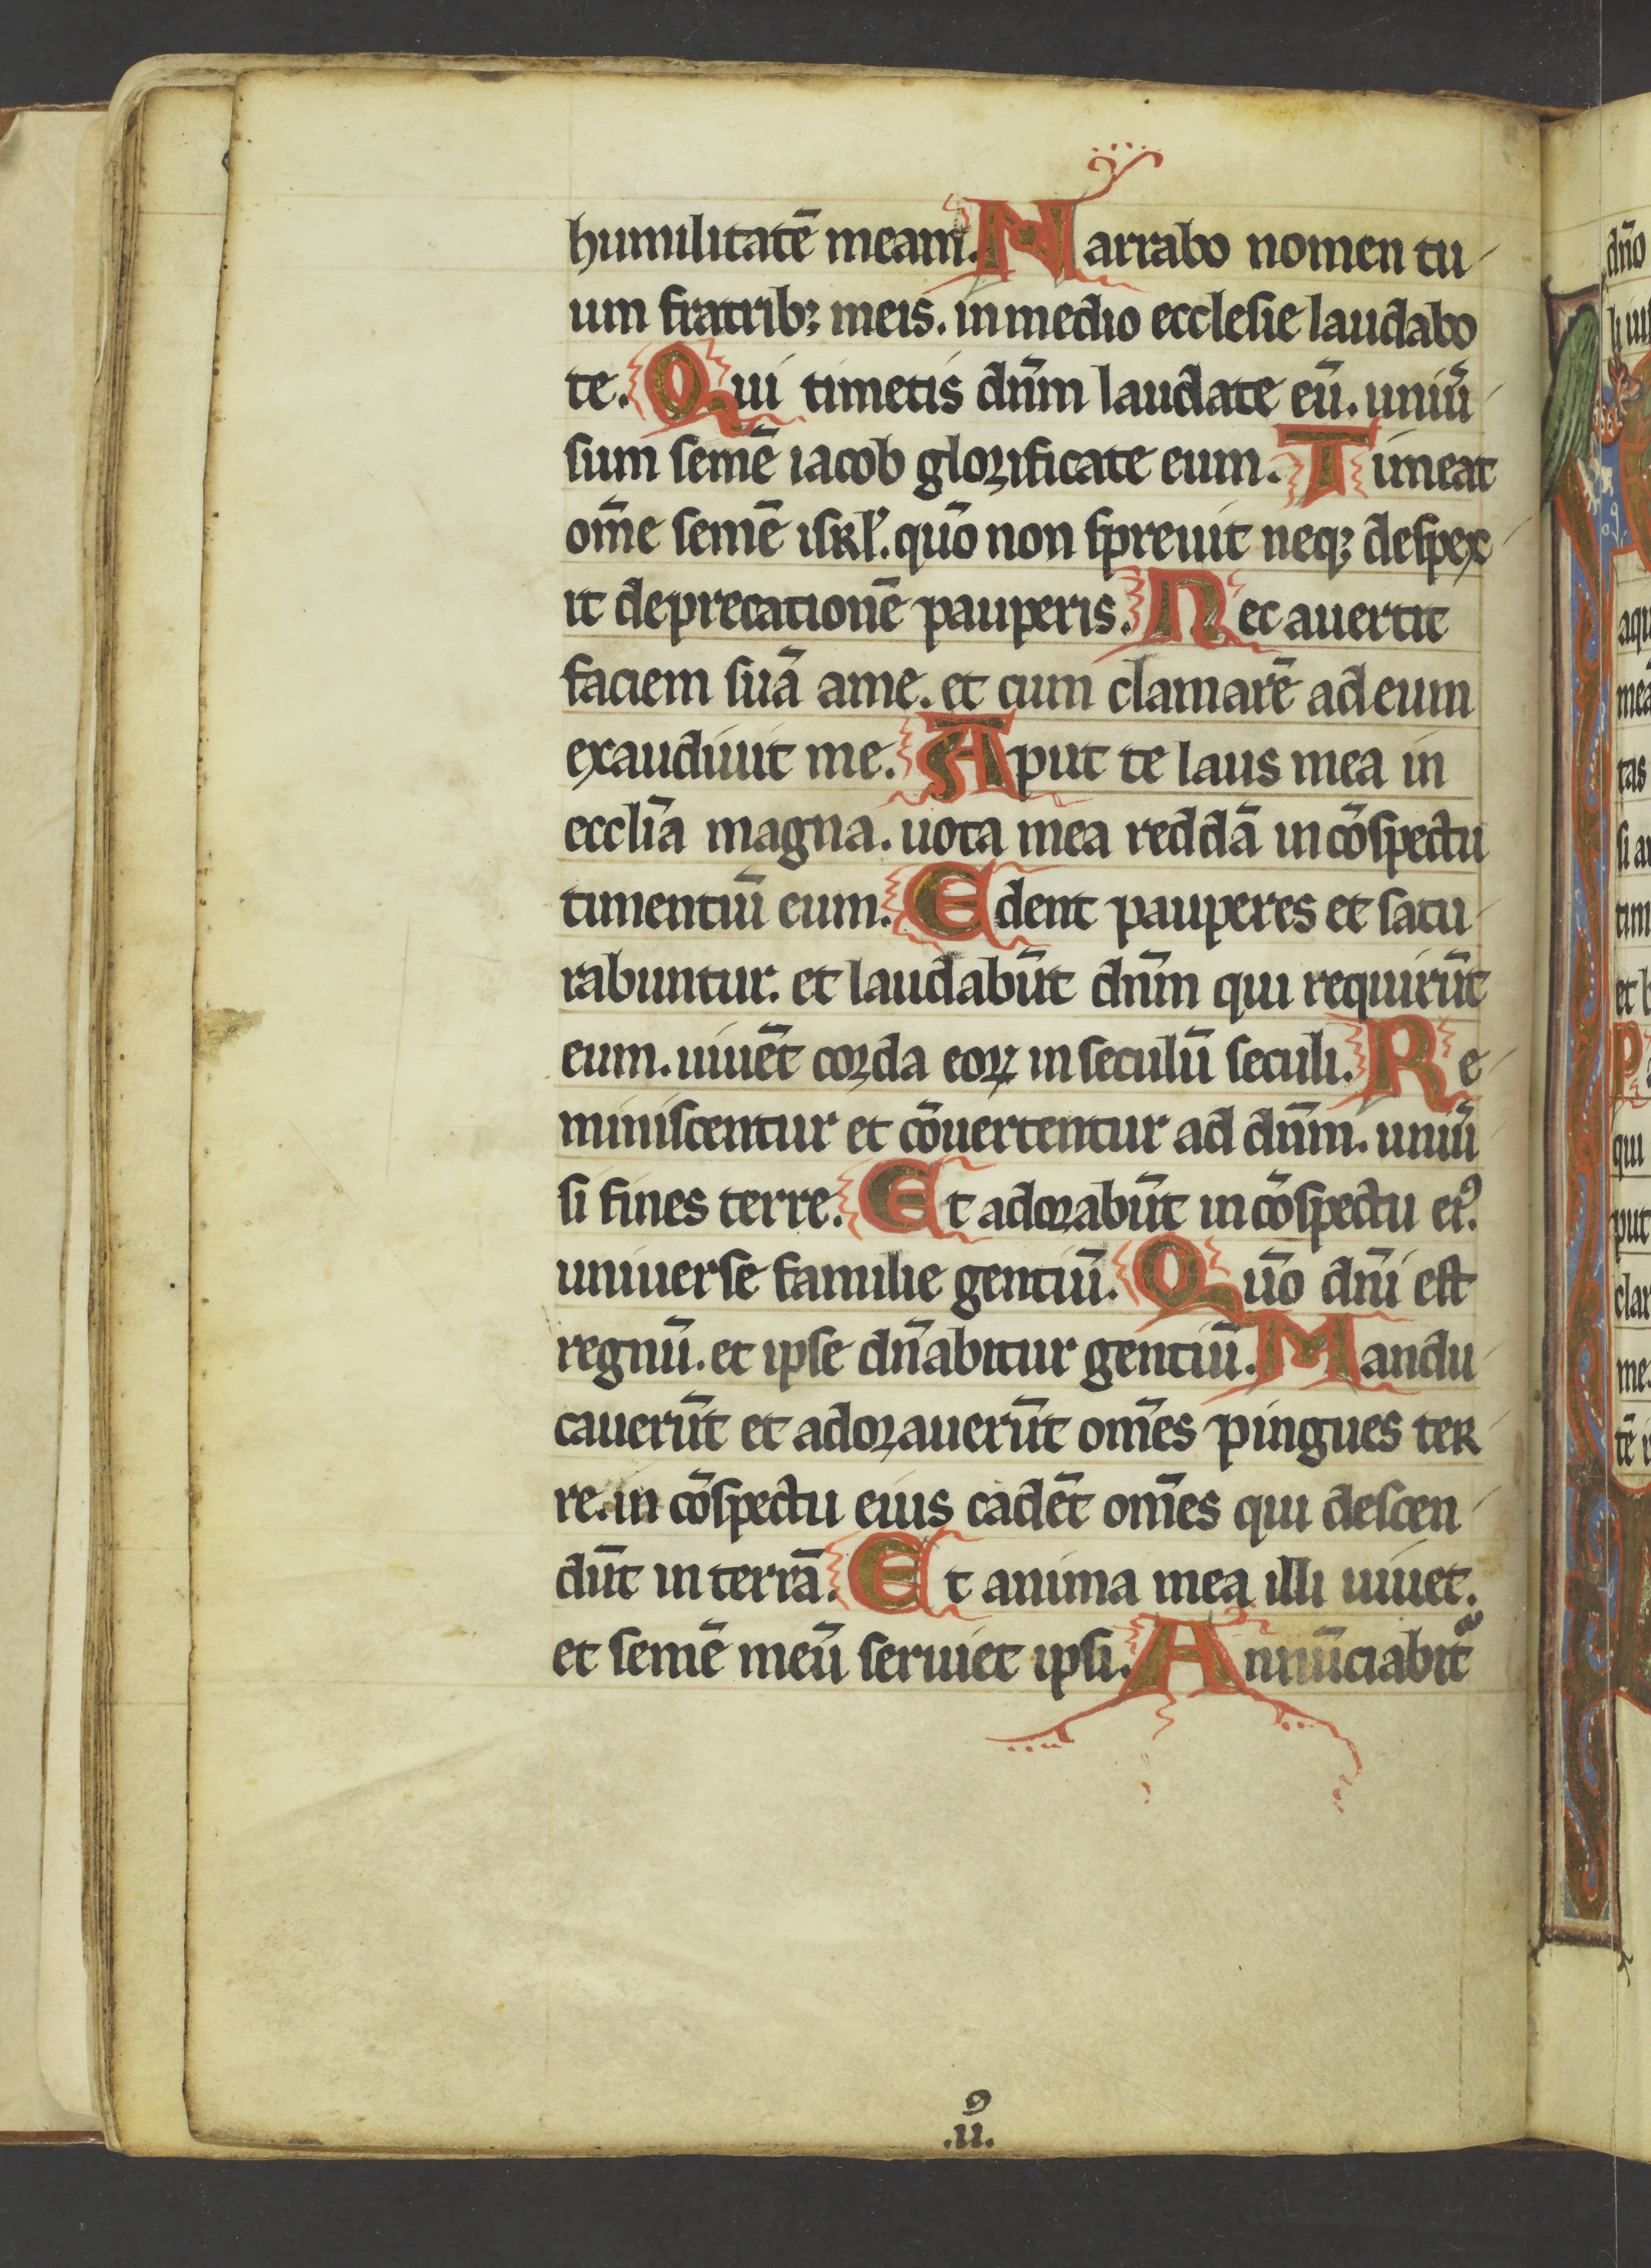 humilitatē meam. Narrabo nomen tu
um fratribꝫ meis. in medio ecclesie laudabo
te. Qui timetis dn̄m laudate eū. uniū
sum semē iacob glorificate eum. Timeat
om̄e semē isrl̛. quō non spreuit neqꝫ despex
it deprecationē pauperis. Nec auertit
faciem suā ame. et cum clamarē ad eum
exaudiuit me. Aput te laus mea in
eccl̄ia magna. uota mea reddā in cōspectu
timentiū eum. Edent pauperes et satu
rabuntur. et laudabūt dn̄m qui requirūt
eum. uiuēt corda eoꝝ in seculū seculi. Re
miniscentur et cōuertentur ad dn̄m. uniū
si fines terre. Et adorabūt in cōspectu eiꝰ.
uniuerse familie gentiū. Quō dn̄i est
regnū. et ipse dn̄abitur gentiū. Mandu
cauerūt et adorauerūt om̄es pingues ter
re. in cōspectu eius cadēt om̄es qui descen
dūt in terrā. Et anima mea illi uiuet.
et semē meū seruiet ipsi. Annūciabit᷑
9
.ii.